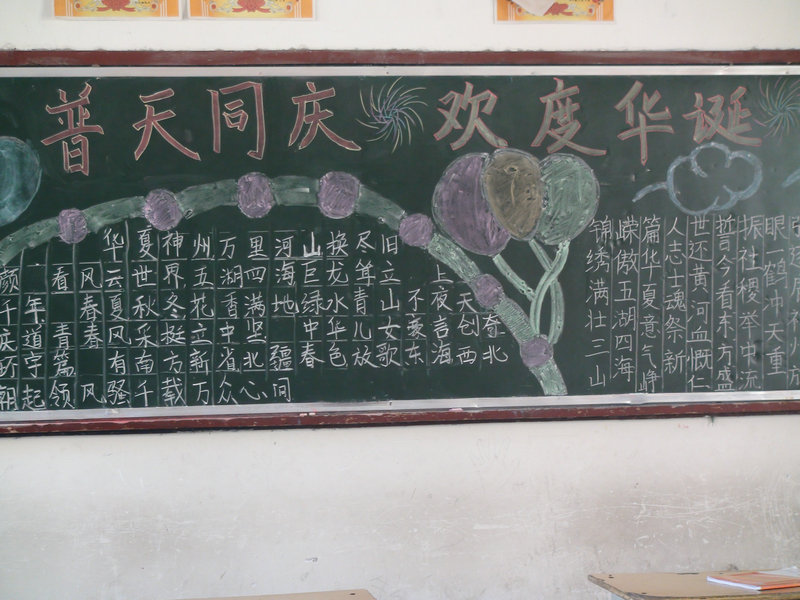 普天同庆 欢度华诞
华夏神州万里河山换尽旧
颜一看风云世界五湖四海巨龙耸立上
千年春夏秋冬花香满地绿水青山不夜天
庆道青春风采挺立中坚中华儿女言创夸
宇篇有南方新省北疆春色放歌东海西北
朝起领风骚千载万众心间
神州放
眼鹤冲天重
振社稷举中流
哲今看东方盛
世还黄河血慨仁
人志士魂祭新
篇华夏意气峥
嵘傲五湖四海
锦绣满壮三山